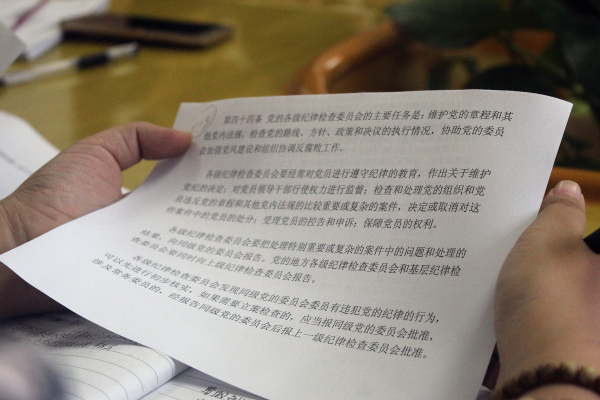 第四十四条 党的各级纪律检查委员会的主要任务是：维护党的章程和其
他党内法规，检查党的路线、方针、政策和决议的执行情况，协助党的委员
会加强党风建设和组织协调反腐败工作。
各级纪律检查委员会要经常对党员进行遵守纪律的教育，作出关于维护
党纪的决定；对党员领导干部行使权力进行监督；检查和处理党的组织和党
员违反党的章程和其他党内法规的比较重要或复杂的案件，决定或取消对这
些案件中的党员的处分；受理党员的控告和申诉；保障党员的权利。
各级纪律检查委员会要把处理特别重要或复杂的案件中的问题和处理的
结果，向同级党的委员会报告。党的地方各级纪律检查委员会和基层纪律检
查委员会要同时向上级纪律检查委员会报告。
各级纪律检查委员会发现同级党的委员会委员有违犯党的纪律的行为，
可以先进行初步核实，如果需要立案检查的，应当报同级党的委员会批准，
涉及常务委员的，经报告同级党的委员会后报上一级纪律检查委员会批准。